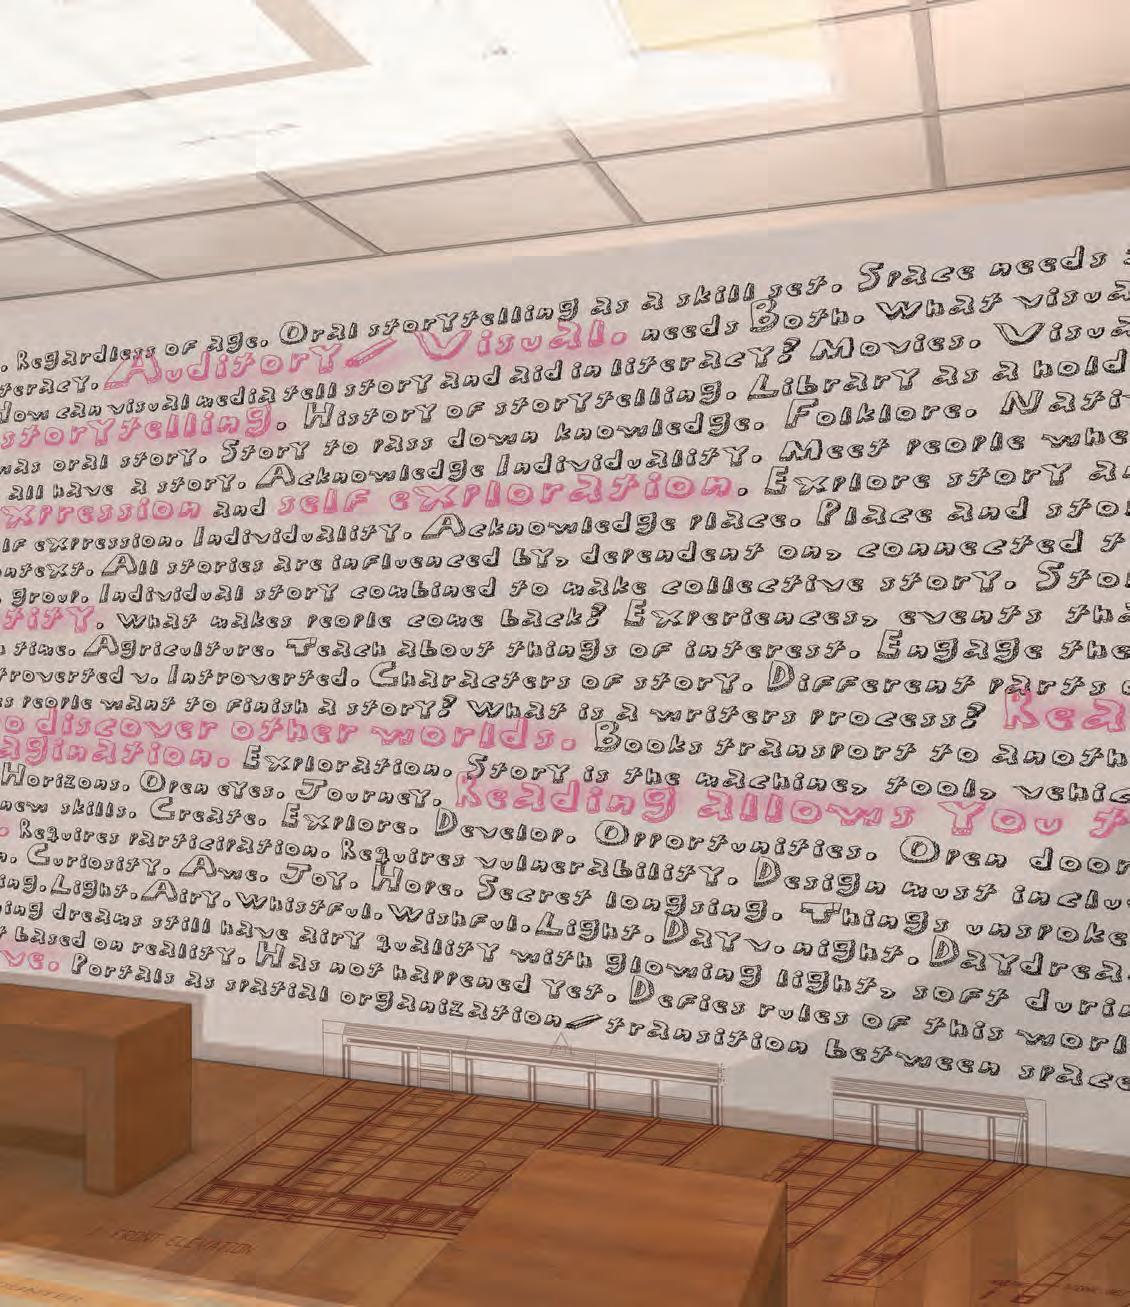 . Regardless of age. Oral storytelling as a skill set. Space needs
teracy. Auditory/ Visual. needs Both. What visua
How can visual media tell story and aid in literacy? Movies. Visua
storytelling. History of storytelling. Library as a hold
was oral story. Story to pass down knowledge. Folklore. Nati
all have a story. Acknowledge Individuality. Meet people whe
xpression and self exploration. Explore story a
lf expression. Individuality. Acknowledge place. Place and sto
ntext. All stories are influenced by, dependent on, connected t
group. Individual story combined to make collective story. Sto
tity. What makes people come back? Experiences, events tha
time. Agriculture. Teach about things of interest. Engage the
troverted v. Introverted. Characters of story. Different parts o
s people want to finish a story? What is a writers process? Rea
o discover other worlds. Books transport to anoth
agination. Exploration. Story is the machine, tool, vehic
Horizons. Open eyes. Journey. Reading allows you t
new skills. Create. Explore. Develop. Opportunities. Open door
. Requires participation. Requires vulnerability. Design must inclu
n. Curiosity. Awe. Joy. Hope. Secret longsing. Things unspoke
ing. Light. Airy. Whistful. Wishful. Light. Day v. night. Daydrea
ing dreams still have airy quality with glowing light, soft durin
t based on reality. Has not happened yet. Defies rules of this worl
ve. Portals as spatial organization/ transition between space
FRONT ELEVATION